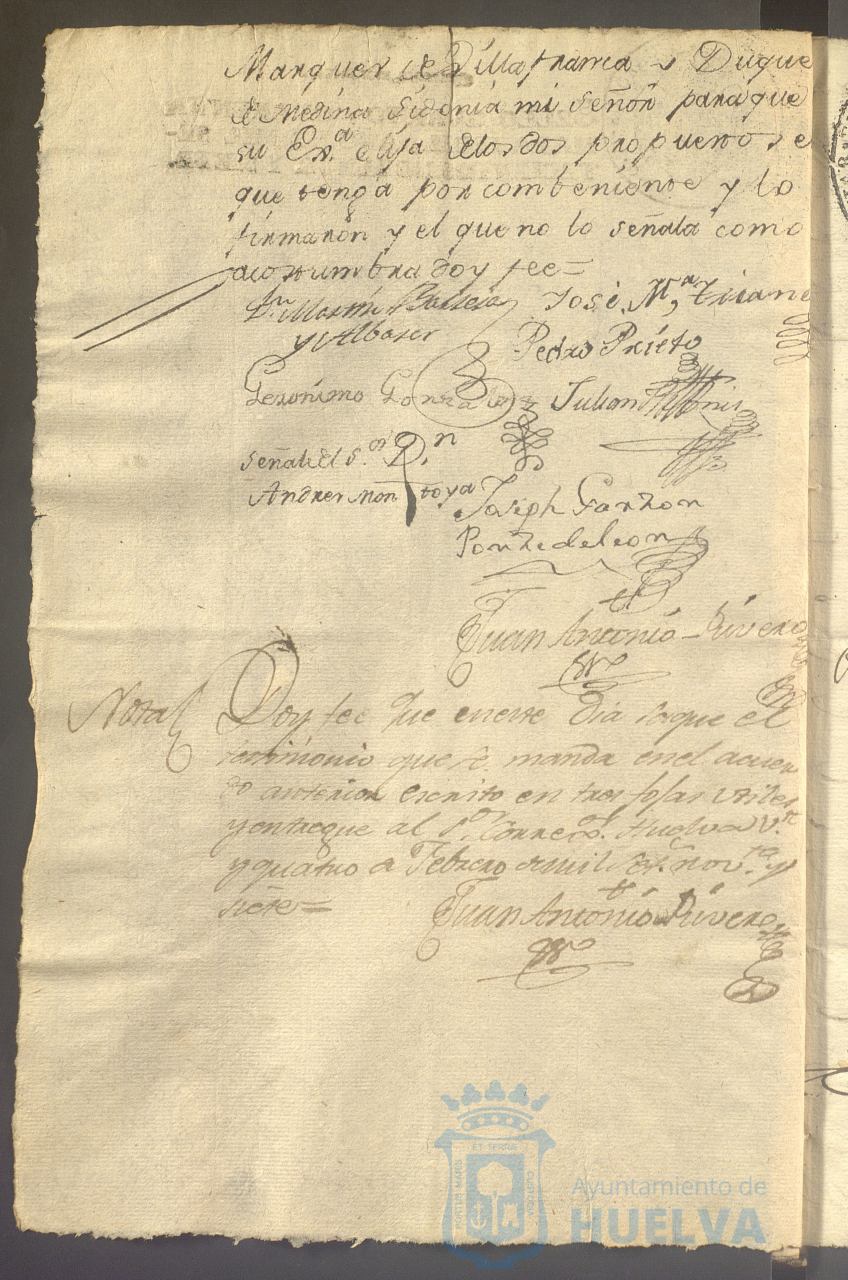 Marques de Villafranca y Duque
de Medina Sidonia mi señor para que
su Exª elija delos dos propuestos el
que tenga por combeniente y lo
firmaron y el que no lo señala como
acostumbra doy fee=
Ldo Martin Barrera
y Albaser
José Mª Triane
Pedro Prieto
Geronimo Gonzales
Julian
señal del Sor Dn
Andres Montoya
Joseph Garzon
Ponze de leon
Juan Antonio Rivero
Nota
Doy fee que en este dia saque el
testimonio que se manda en el acuer
do anterior escrito en tres fojas utiles
y entregue al Sor Corregor. Huelva Vte
y quatro de Febrero de mil Setª novta y
siete=
Juan Antonio Rivero
Ayuntamiento de
HUELVA